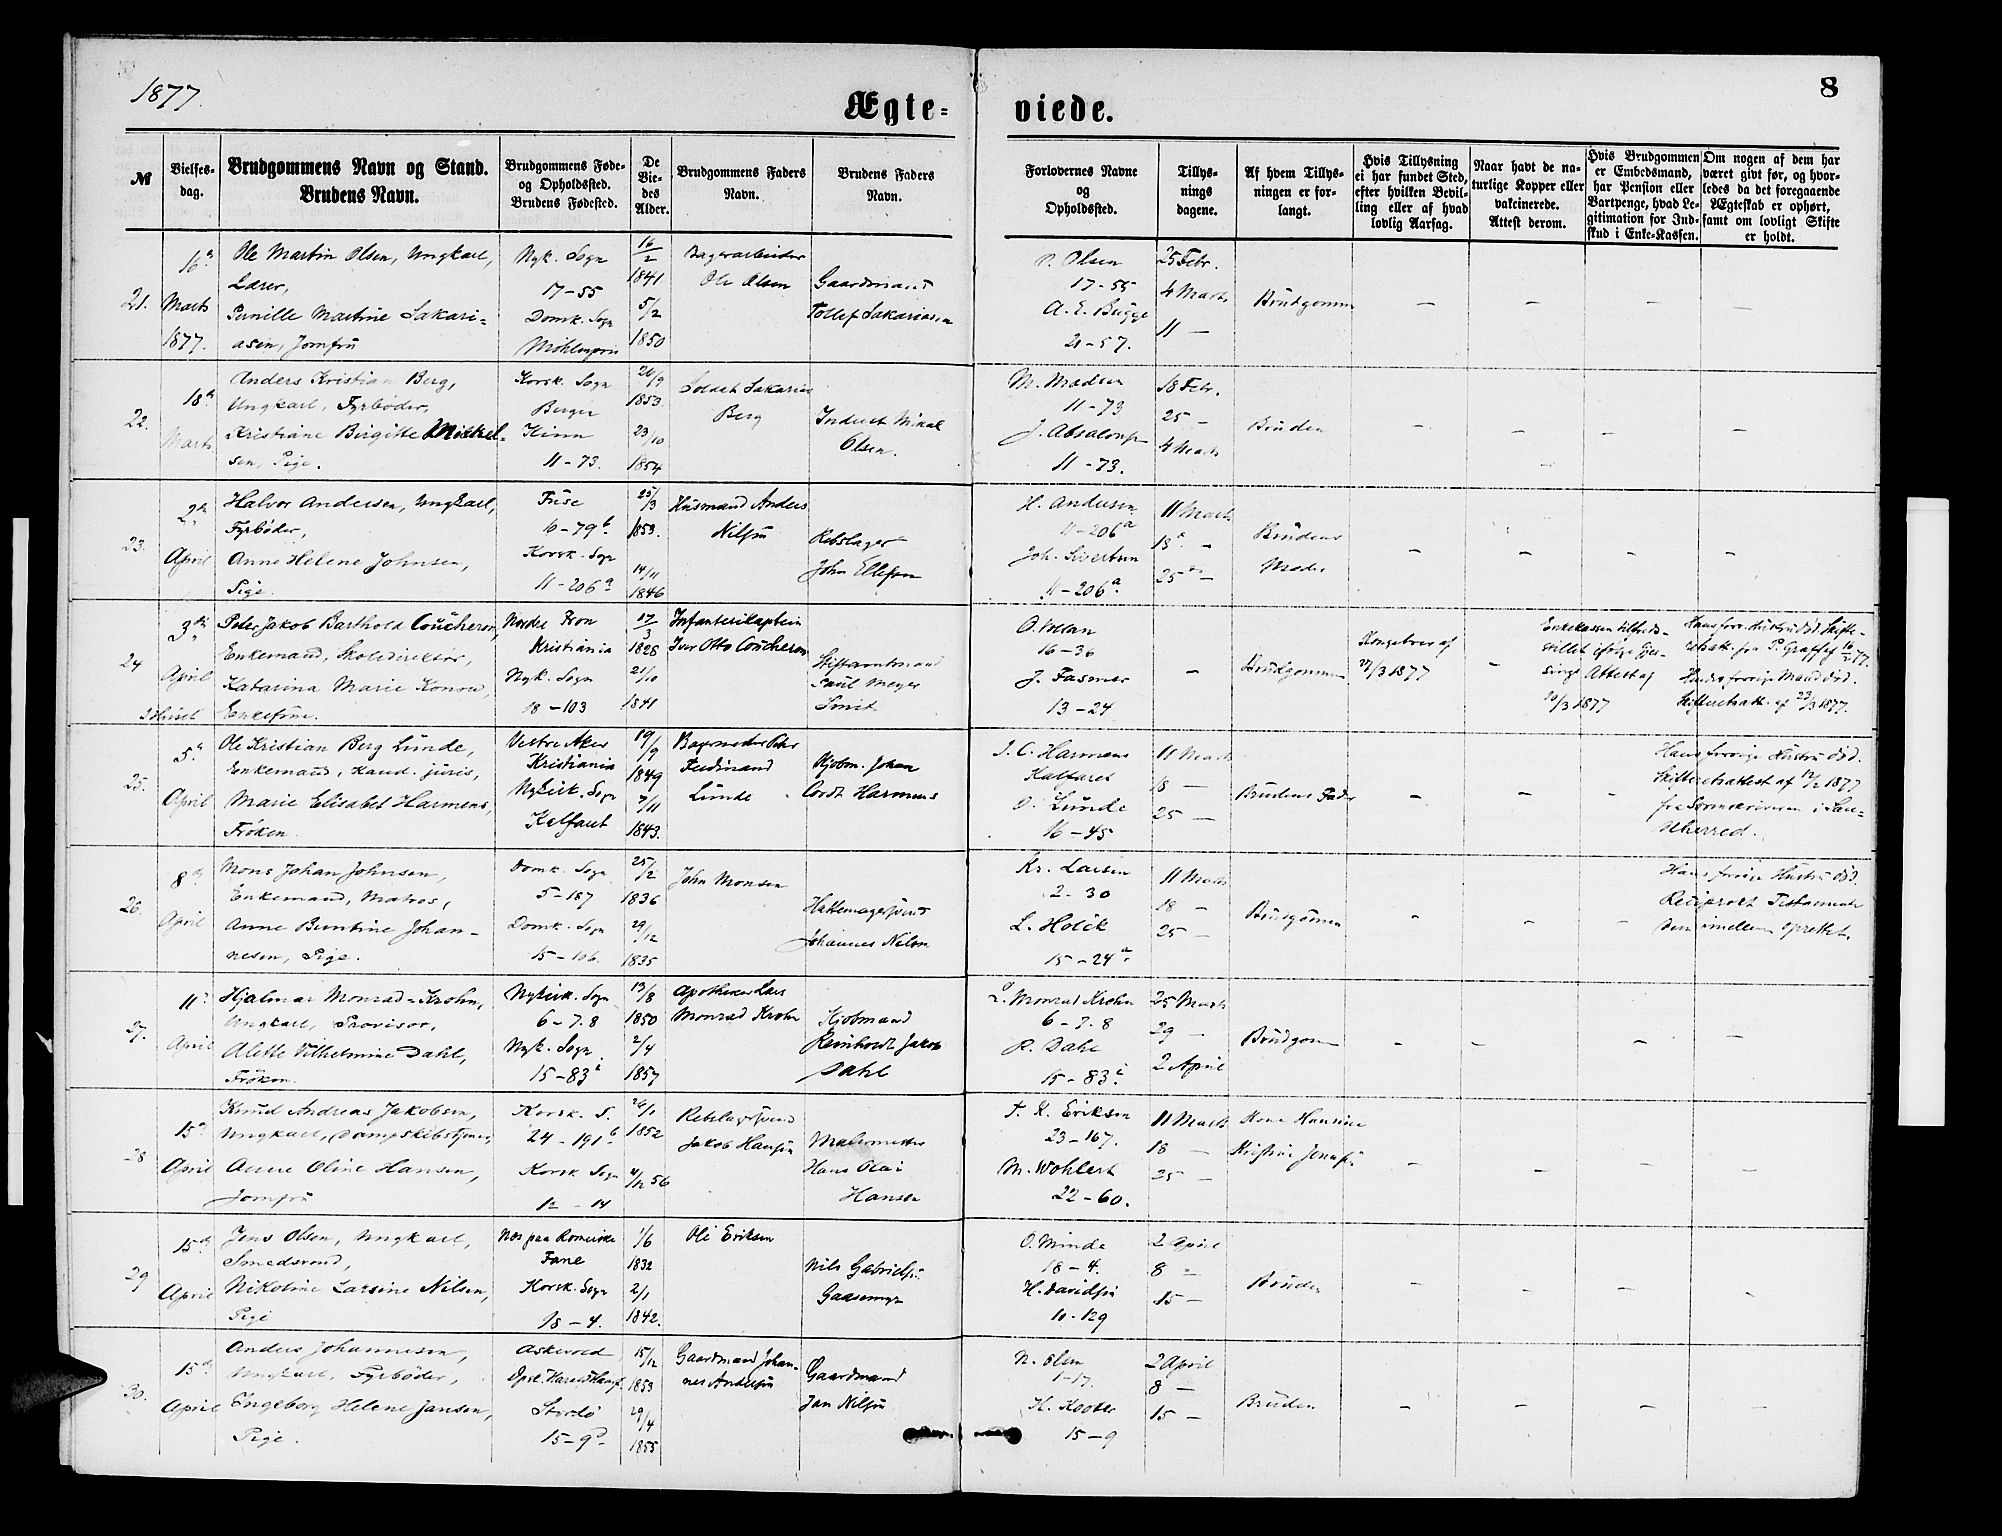 1877.
Ægte-
viede.
8
№
Vielses-
dag.
Brudgommens Navn og Stand.
Brudens Navn.
Brudgommens Føde-
og Opholdssted.
Brudens Fødested.
De
Vie-
des
Alder.
Brudgommens Faders
Navn.
Brudens Faders
Navn.
Forlovernes Navne
og
Opholdssted.
Tillys-
nings
dagene.
Af hvem Tillys-
ningen er for-
langt.
Hvis Tillysning
ei har fundet Sted,
efter hvilken Bevil-
ling eller af hvad
lovlig Aarsag.
Naar havt de na-
turlige Kopper eller
vakcinerede.
Attest derom.
Hvis Brudgommen
er Embedsmand,
har Pension eller
Vartpenge, hvad Le-
gitimation for Ind-
skud i Enke-Kassen.
Om nogen af dem har
været givt før, og hvor-
ledes da det foregaaende
Ægteskab er ophørt,
samt om lovligt Skifte
er holdt.
21.
Marts
1877.
Ole Martin Olsen, Ungkarl,
Lærer,
Pernille Martine Sakari-
asen, Jomfru
Nyk. Sogn
17-55
Domk. Sogn
Møhlenpris
16/2
1841
5/2
1850
Bagerarbeider
Ole Olsen
Gaardmand
Tollef Sakariasen
Olsen
17-55
A. E. Bugge
21-57.
25 Febr.
4 Marts
11 —
Brudgommen
— — — —
22.
Marts
Anders Kristian Berg,
Ungkarl, Fyrbøder,
Kristiane Birgitte Mikkel-
sen, Pige.
Korsk. Sogn
Bergen
Kinn
11-73.
26/9
1853.
23/10
1854
Soldat Sakarias
Berg
Inderst Mikal
Olsen.
M. Madsen
11-73
J. Absalons
11-73.
18 Febr.
25 —
4 Marts
Bruden
— — — —
23.
April
Halvor Andersen, Ungkarl,
Fyrbøder,
Anne Helene Johnsen,
Pige.
Fuse
16-79b
Korsk. Sogn
11-206a
25/3
1853.
14/11
1846
Husmand Anders
Nilsen
Rebslager
John Ellefsen
H. Andersen
11-206a
Joh. Sivertsen
11-206a.
11 Marts
25 —
Brudens
Moder
— — — —
24
April
Peter Jakob Barthold Coucheron,
Enkemand, Skoledirektør,
Katarina Marie Konow,
Enkefrue.
Nordre Fron
Kristiania
Nyk. Sogn
18-103
17/3
1828
21/10
1841
Infanterikaptein
Iver Otto Coucheron
Stiftamtmand
Paul Meyer
Smit
16-36
J. Fasmer
13-24
—
Brudgommen
Kongebrev af
27/3 1877
—
Attest af
1877
25.
April
Ole Kristian Berg Lunde,
Enkemand, Kand. juris,
Marie Elisabet Harmens,
Frøken.
Vestre Aker
Kristiania
Nykirk. Sogn
Kalfaret
19/9
1849
7/11
1843.
Bagermester Peter
Ferdinand
Lunde
Kjøbm. Johan
Cordt Harmens
J. C. Harmens
Kalfaret
O. Lunde
16-45
11 Marts
18 —
25 —
Brudens Fader
— — —
Hans forrige Hustru død.
Skifteretsattest af 12/2 1877
26.
April
Mons Johan Johnsen,
Enkemand, Matros,
Anne Berntine Johan-
nesen, Pige.
Domk. Sogn
5-187
Domk. Sogn
15-106.
25/2
1836
29/12
1835
John Monsen
Hattemagersvend
Johannes Nilsen
Kr. Larsen
2-30
L. Holck
15-24a.
11 Marts
18 —
25 —
Brudgommen
— — —
Hans forrige Hustru død.
Reciprokt Testamente
dem imellem oprettet.
27.
April
Hjalmar Monrad-Krohn,
Ungkarl, Provisor,
Alette Vilhelmine Dahl,
Frøken.
Nykirk. Sogn
6-7.8
Nyk. Sogn
15-83
13/8
1850
2/4
1857
Apotheker Lars
Monrad Krohn
Kjøbmand
Reinholdt Jakob
Dahl
L. Monrad Krohn
6-7.8
R. Dahl
15-83
25 Marts
29 —
2 April
Brudgom
— — — —
28
April
Knud Andreas Jakobsen,
Ungkarl, Dampskibstjener,
Anne Oline Hansen,
Jomfru
Korsk. S.
24-191b
Korsk Sogn
12-14
26/1
1852
4/12 56
Rebslagersvend
Jakob Hansen
Malermester
Hans Olai
Hansen
T. K. Eriksen
23-167.
M. Wohlert
22-60.
11 Marts
18 —
25 —
Kone Hansine
Kristine Jensen
— — — —
29
April
Jens Olsen, Ungkarl,
Smedsvend,
Nikoline Larsine Nilsen,
Pige
Nes paa Romerike
Fane
Korsk. Sogn
18-4.
1/6
1832
2/1
1842.
Ole Eriksen
Nils Gabrielsen
Gaasemyr
O. Minde
18-4.
H. Davidsen
10-129
2 April
8 —
15 —
Bruden
— — — —
30.
April
Anders Johannesen,
Ungkarl, Fyrbøder,
Ingeborg Helene Jansen,
Pige.
Askevold
Stordø
15-9
15/12
1853
29/4
1855
Gaardmand Johan-
nes Andersen
Gaardmand
Jan Nilsen
N. Olsen
1-17.
K. Kooter
15-9
2 April
8 —
15 —
Bruden
— — — —